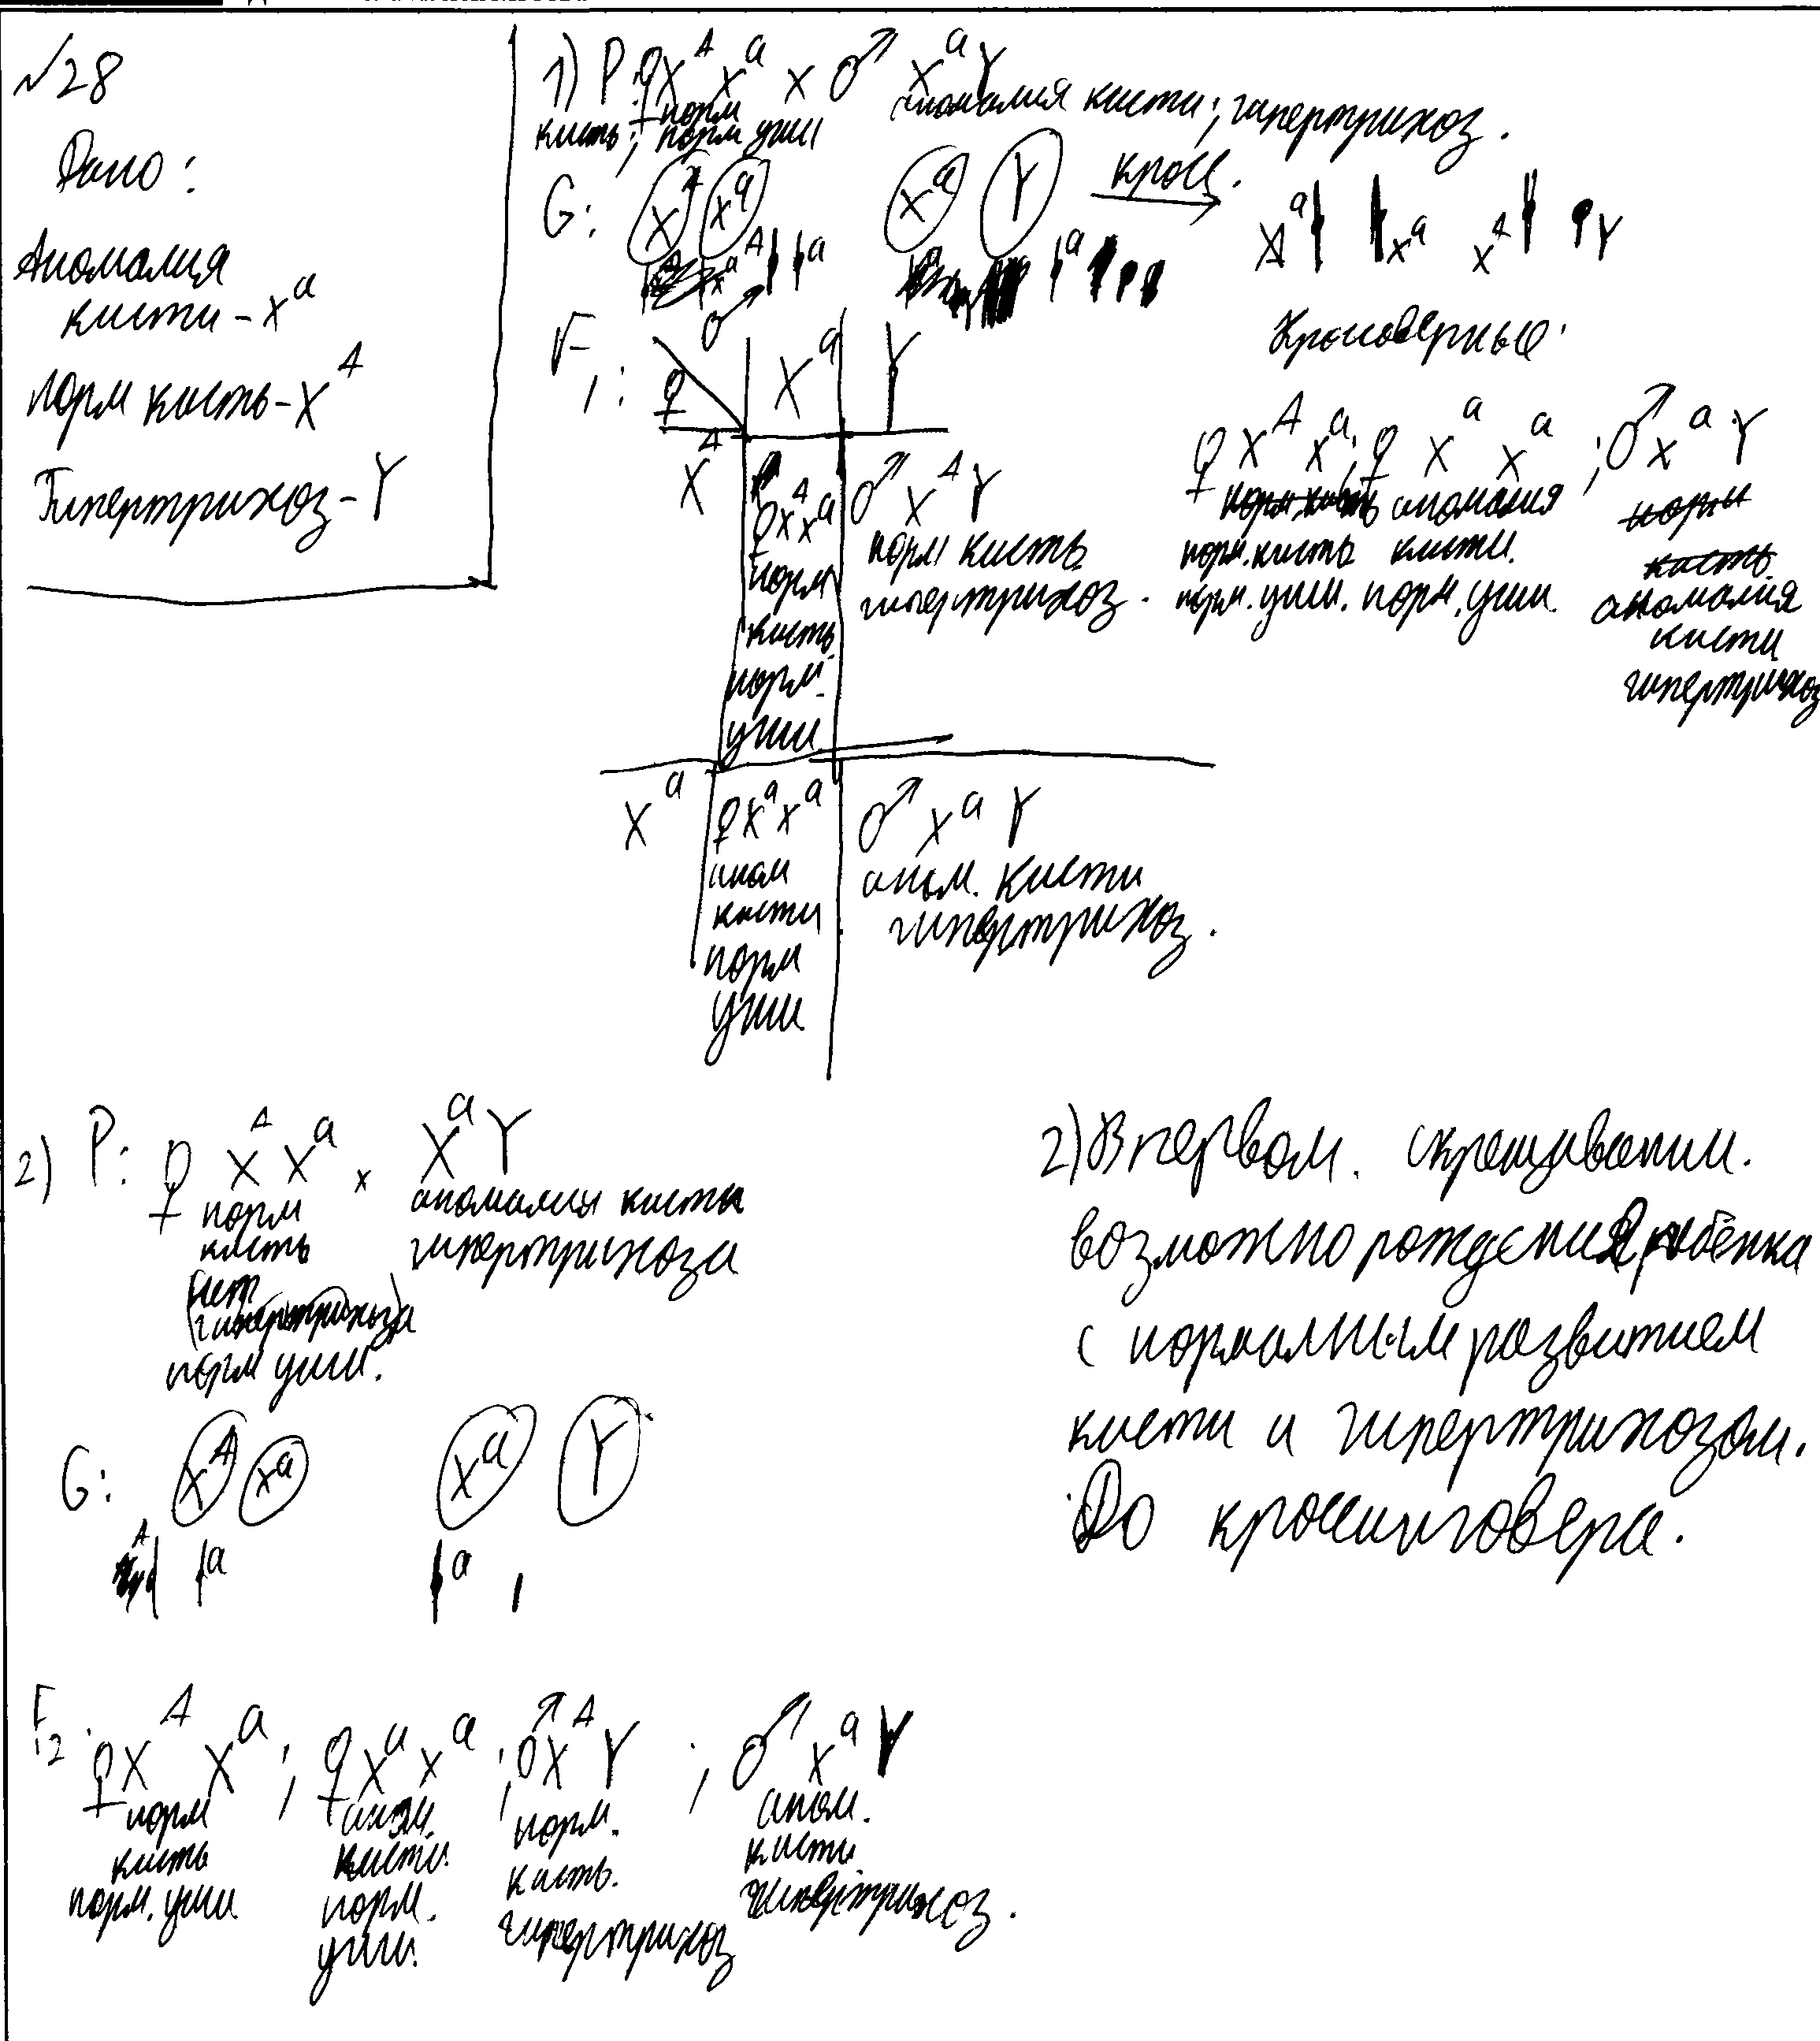 №28
Дано:
Аномалия
кисти - X^a
Норм кисть - X^A
Гипертрихоз - Y
1) P: ♀X^A X^a x ♂ X^a Y
норм
кисть; норм уши
аномалия кисти; гипертрихоз.
G: X^A X^a X^a Y кросс. →
X^a X^a X^A Y
Кроссоверные:
F1: ♀ ♂ X^a Y
X^A
♀X^A X^a
норм
кисть
норм.
уши
♂ X^A Y
норм кисть
гипертрихоз.
X^a
♀X^a X^a
аном
кисти
норм
уши
♂ X^a Y
аном. кисти
гипертрихоз.
♀ X^A X^a; ♀ X^a X^a; ♂ X^a Y
норм. кисть
норм. уши.
аномалия
кисти.
норм. уши.
норм
кисть
аномалия
кисти
гипертрихоз
2) P: ♀ X^A X^a x X^a Y
норм
кисть
нет
гипертрихоза
норм уши.
аномалия кисти
гипертрихоза
G: X^A X^a X^a Y
F2: ♀X^A X^a; ♀X^a X^a; ♂X^A Y; ♂ X^a Y
норм
кисть
норм. уши
аном.
кисти.
норм.
уши.
норм.
кисть.
гипертрихоз
аном.
кисти
гипертрихоз.
2) В первом. скрещивании.
возможно рождения ребёнка
с нормальным развитием
кисти и гипертрихозом.
До кроссинговера.